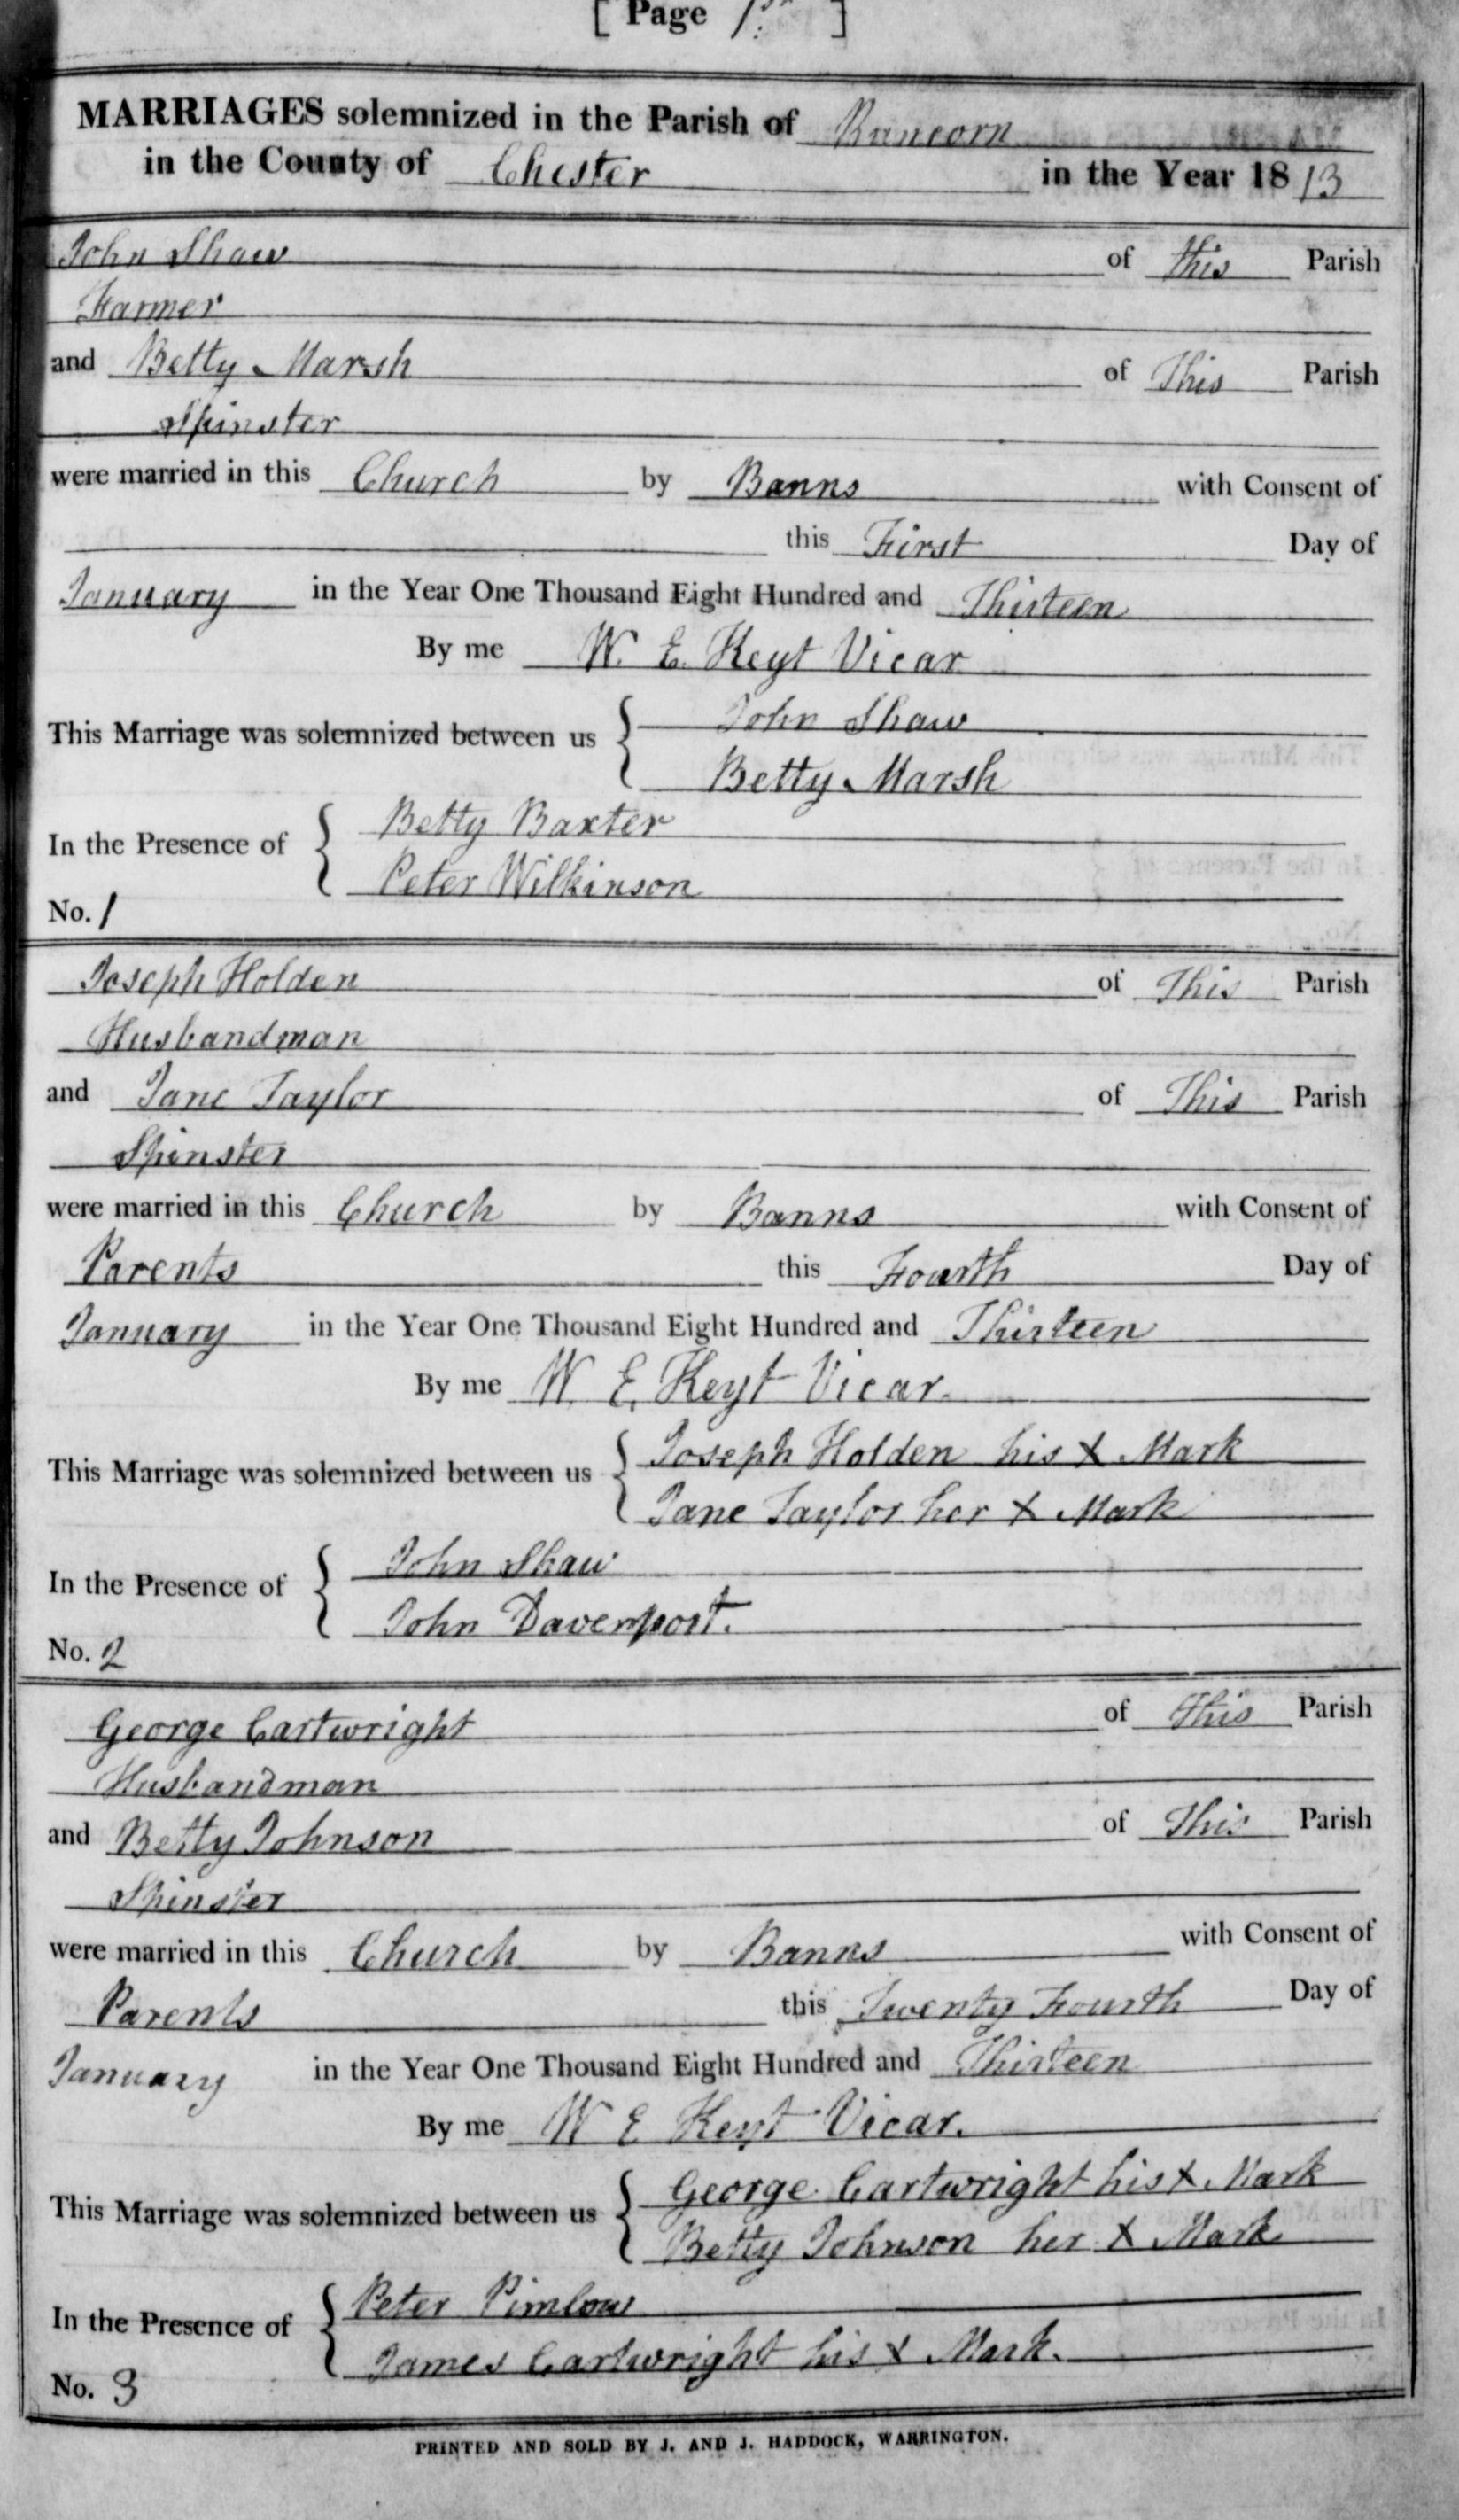 [ Page 1 ]
MARRIAGES solemnized in the Parish of Runcorn
in the County of Chester in the Year 1813
John Shaw of this Parish
Farmer
and Betty Marsh of This Parish
Spinster
were married in this Church by Banns with Consent of
this First Day of
January in the Year One Thousand Eight Hundred and Thirteen
By me W. E. Keyt Vicar
This Marriage was solemnized between us { John Shaw
Betty Marsh
In the Presence of { Betty Baxter
Peter Wilkinson
No. 1
Joseph Holden of This Parish
Husbandman
and Jane Taylor of This Parish
Spinster
were married in this Church by Banns with Consent of
Parents this Fourth Day of
January in the Year One Thousand Eight Hundred and Thirteen
By me W. E. Keyt Vicar.
This Marriage was solemnized between us { Joseph Holden his X Mark
Jane Taylor her X Mark
In the Presence of { John Shaw
John Davenport.
No. 2
George Cartwright of This Parish
Husbandman
and Betty Johnson of This Parish
Spinster
were married in this Church by Banns with Consent of
Parents this Twenty Fourth Day of
January in the Year One Thousand Eight Hundred and Thirteen
By me W E Keyt Vicar.
This Marriage was solemnized between us { George Cartwright his X Mark
Betty Johnson her X Mark
In the Presence of { Peter Pimlow
James Cartwright his X Mark.
No. 3
PRINTED AND SOLD BY J. AND J. HADDOCK, WARRINGTON.